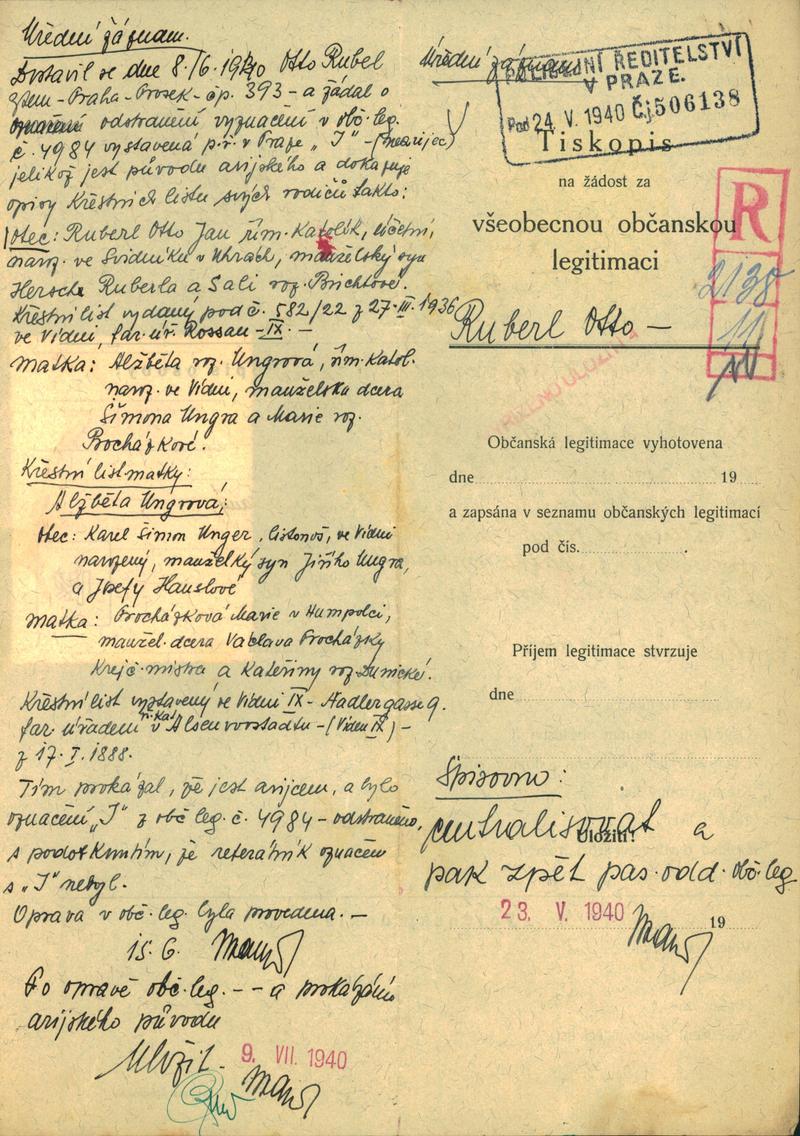 Úřední záznam.
Dostavil se dne 8./6. 1940 Otto Rubel
- Praha - Prosek - čp. 393 - a žádal o
odstranění vyznačení v obč. leg.
č. 4984 vystavená p.ř. v Praze „J" - (nearijec)
jelikož jest původu arijského a dokazuje
opisy Křestních listu svých rodičů takto:
otec: Ruberl Otto Jan řím. Katolík, účetní,
naroz. ve Svidníku v Uhrách, manželský syn
Hersche Ruberla a Sali roz. Brichtové.
Křestní list vydaný pod č. 582/22 z 27. III. 1936
ve Vídni, far. úř. Rossau - IX. -
matka: Alžběta roz. Ungrová, řím. katol.
naroz. ve Vídni, manželská dcera
Šimona Ungra a Marie roz.
Procházkové.
Křestní list matky:
Alžběta Ungrová;
otec: Karel Šimon Unger, listonoš, ve Vídni
narozený, manželský syn Jiřího Ungra,
a Josefy Hauslové
matka: Procházková Marie v Humpolci,
manžel. dcera Václava Procházky
Krejč. mistra a Kateřiny roz.
Křestní list vystavený ve Vídni IX - Nadlergasse 9.
far. úřadem ř. kat. v Alservorstadtu - (Vídeň IX) -
z 17. I. 1888.
Tím prokázal, že jest arijcem, a bylo
označení „J" z obč. leg. č. 4984 - odstraněno,
s podotknutím, že označen
s „J" nebyl.
Oprava v obč. leg. byla provedena. -
15. 6.
Po opravě obč. leg. - - a prokázání
arijského původu
Uložit.
9. VII. 1940
Úřední záznam
POLICEJNÍ ŘEDITELSTVÍ
V PRAZE.
Pod 24. V. 1940 Čj. 506138
Tiskopis
na žádost za
všeobecnou občanskou
legitimaci
R
2138
11
Ruberl Otto -
Občanská legitimace vyhotovena
dne 19
a zapsána v seznamu občanských legitimací
pod čís. .
Příjem legitimace stvrzuje
dne
Spisovno:
centralisovat a
Uložiti!
pak zpět pas. odd. obč. leg.
23. V. 1940
19